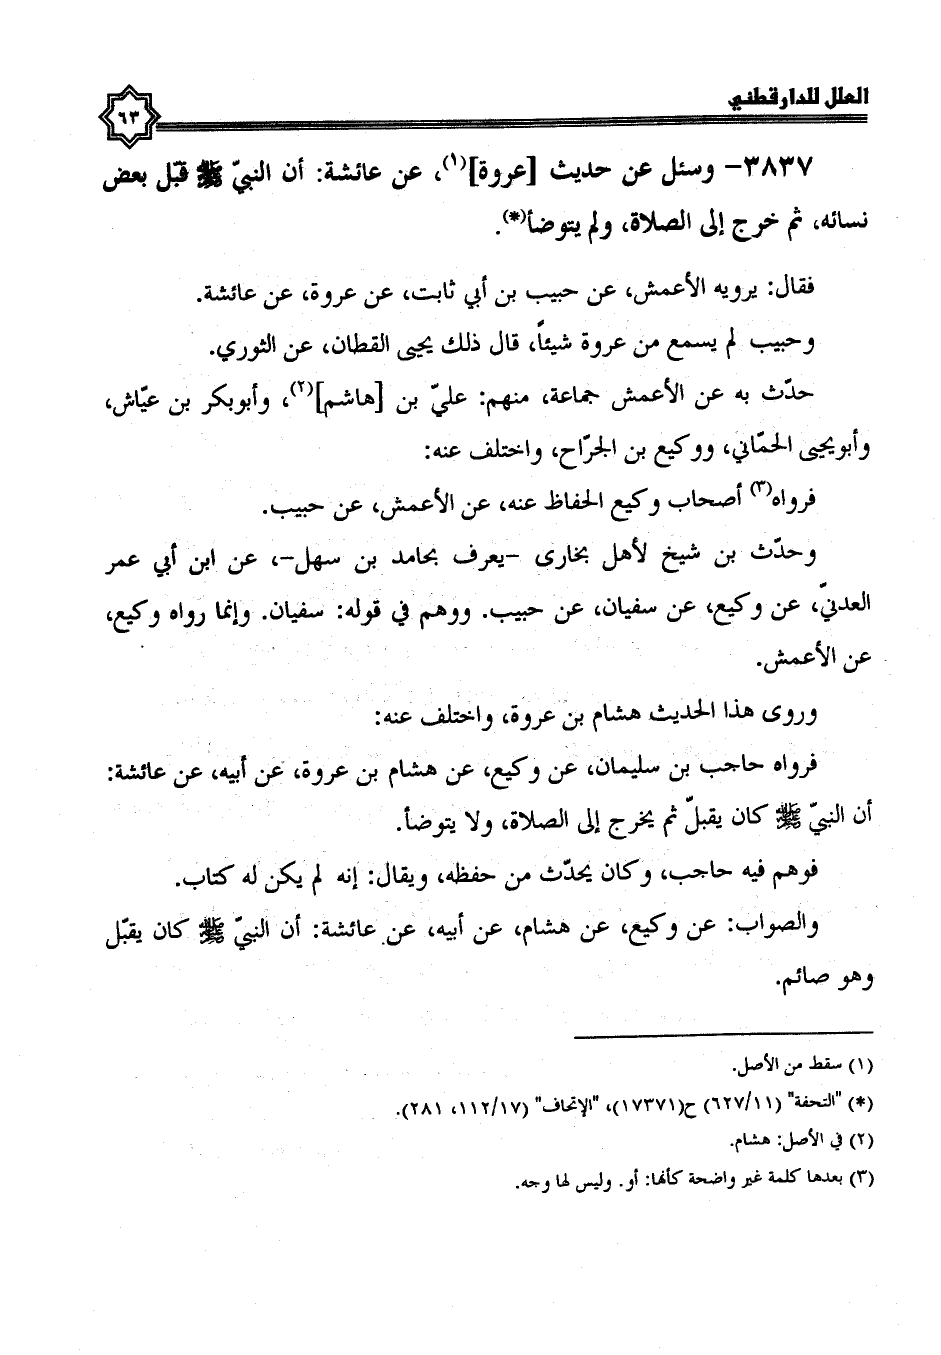 العلل للدارقطني
٦٣
٣٨٣٧- وسئل عن حديث [عروة](١)، عن عائشة: أن النبيّ ﷺ قبّل بعض
نسائه، ثم خرج إلى الصلاة، ولم يتوضأ(*).
فقال: يرويه الأعمش، عن حبيب بن أبي ثابت، عن عروة، عن عائشة.
وحبيب لم يسمع من عروة شيئاً، قال ذلك يحيى القطان، عن الثوري.
حدّث به عن الأعمش جماعة، منهم: عليّ بن [هاشم](٢)، وأبوبكر بن عيّاش،
وأبويحيى الحمّاني، ووكيع بن الجرّاح، واختلف عنه:
فرواه(٣) أصحاب وكيع الحفاظ عنه، عن الأعمش، عن حبيب.
وحدّث بن شيخ لأهل بخارى -يعرف بحامد بن سهل-، عن ابن أبي عمر
العدنيّ، عن وكيع، عن سفيان، عن حبيب. ووهم في قوله: سفيان. وإنما رواه وكيع،
عن الأعمش.
وروى هذا الحديث هشام بن عروة، واختلف عنه:
فرواه حاجب بن سليمان، عن وكيع، عن هشام بن عروة، عن أبيه، عن عائشة:
أن النبيّ ﷺ كان يقبلّ ثم يخرج إلى الصلاة، ولا يتوضأ.
فوهم فيه حاجب، وكان يحدّث من حفظه، ويقال: إنه لم يكن له كتاب.
والصواب: عن وكيع، عن هشام، عن أبيه، عن عائشة: أن النبيّ ﷺ كان يقبّل
وهو صائم.
(١) سقط من الأصل.
(*) "التحفة" (٦٢٧/١١) ح(١٧٣٧١)، "الإتحاف" (١١٢/١٧، ٢٨١).
(٢) في الأصل: هشام.
(٣) بعدها كلمة غير واضحة كأنها: أو. وليس لها وجه.